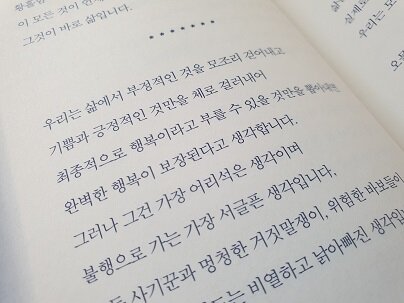 이 모든 것이
그것이 바로 삶입니다.
*******
우리는 삶에서 부정적인 것을 모조리 걷어내고
기쁨과 긍정적인 것만을 체로 걸러내어
최종적으로 행복이라고 부를 수 있을 것만을 뽑아내면
완벽한 행복이 보장된다고 생각합니다.
그러나 그건 가장 어리석은 생각이며
불행으로 가는 가장 서글픈 생각입니다.
사기꾼과 멍청한 거짓말쟁이, 위험한 바보들이
비열하고 낡아빠진 생각입
우리는 모